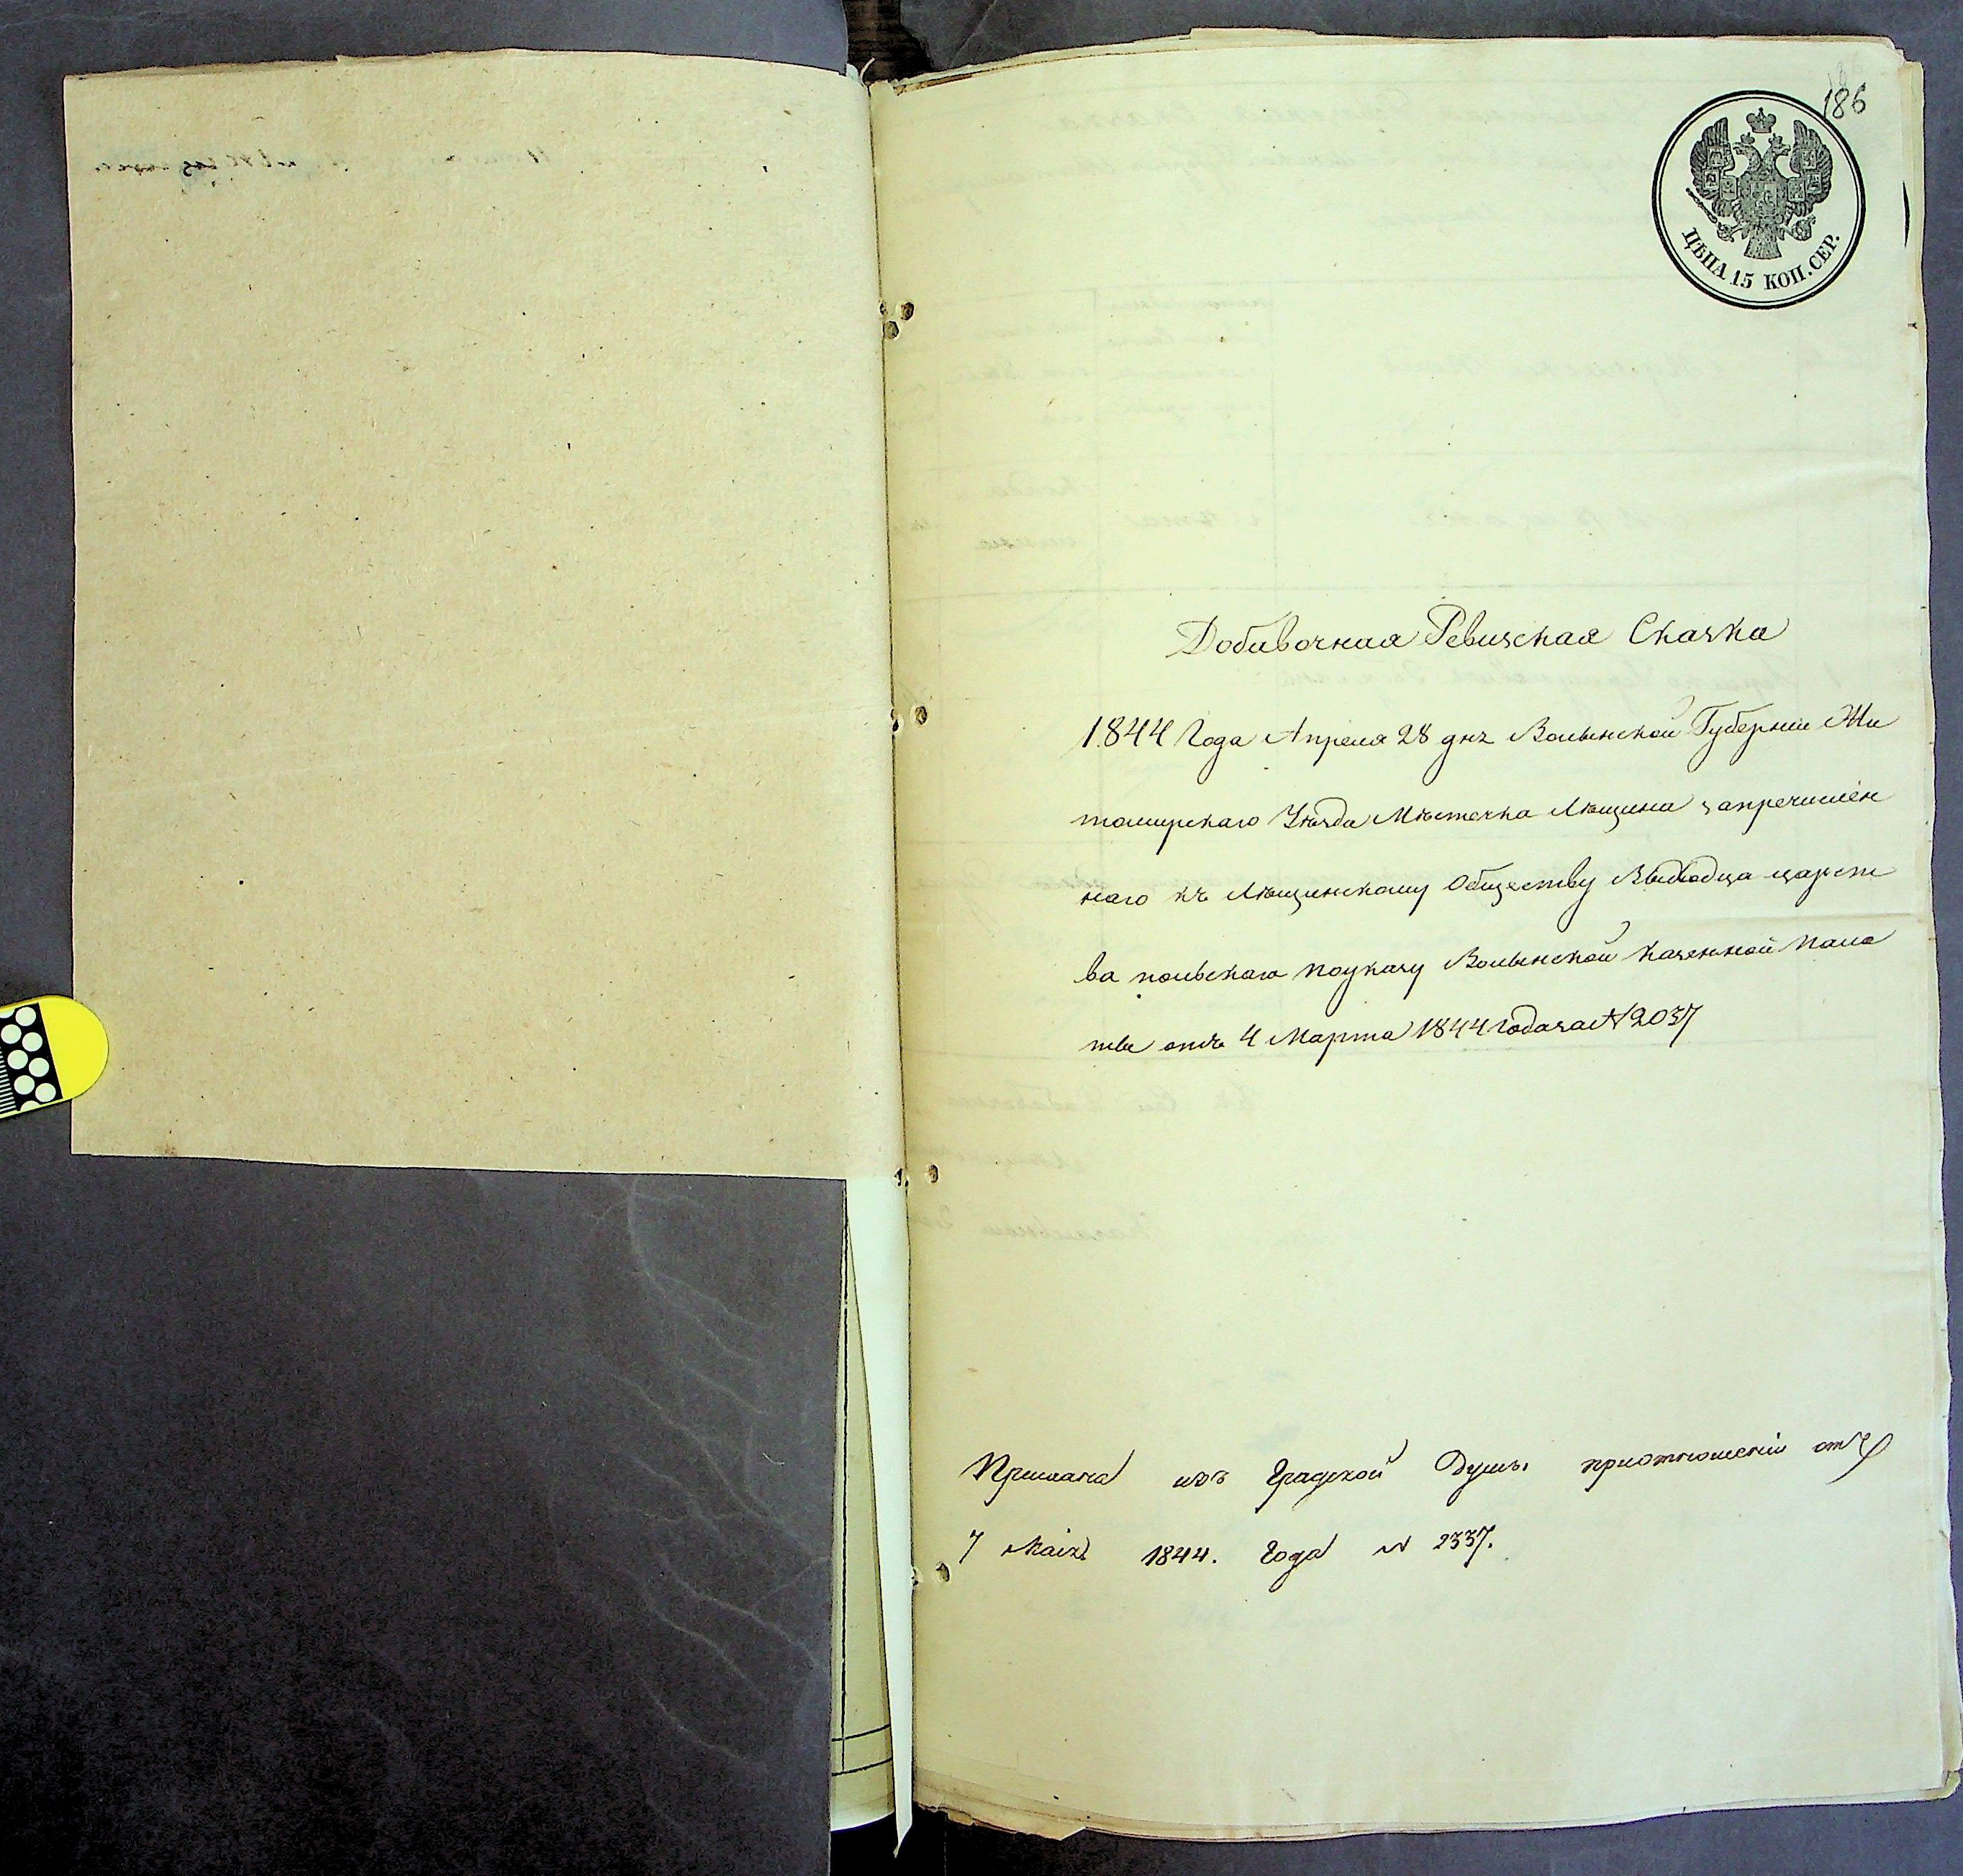 186
ЦѢНА 15 КОП. СЕР.
Добавочная Ревизская Сказка
1844 Года Апреля 28 дня Волынской Губерніи Жи
томирскаго Уѣзда Мѣстечка Лѣщина запречислен
наго къ Лѣщинскому Обществу Выходца царст
ва польскаго поуказу Волынской казенной пала
ты отъ 4 Марта 1844 года за № 2037
Прислана изъ Градской Думы приотношеніи отъ
7 Маія 1844. Года № 2337.